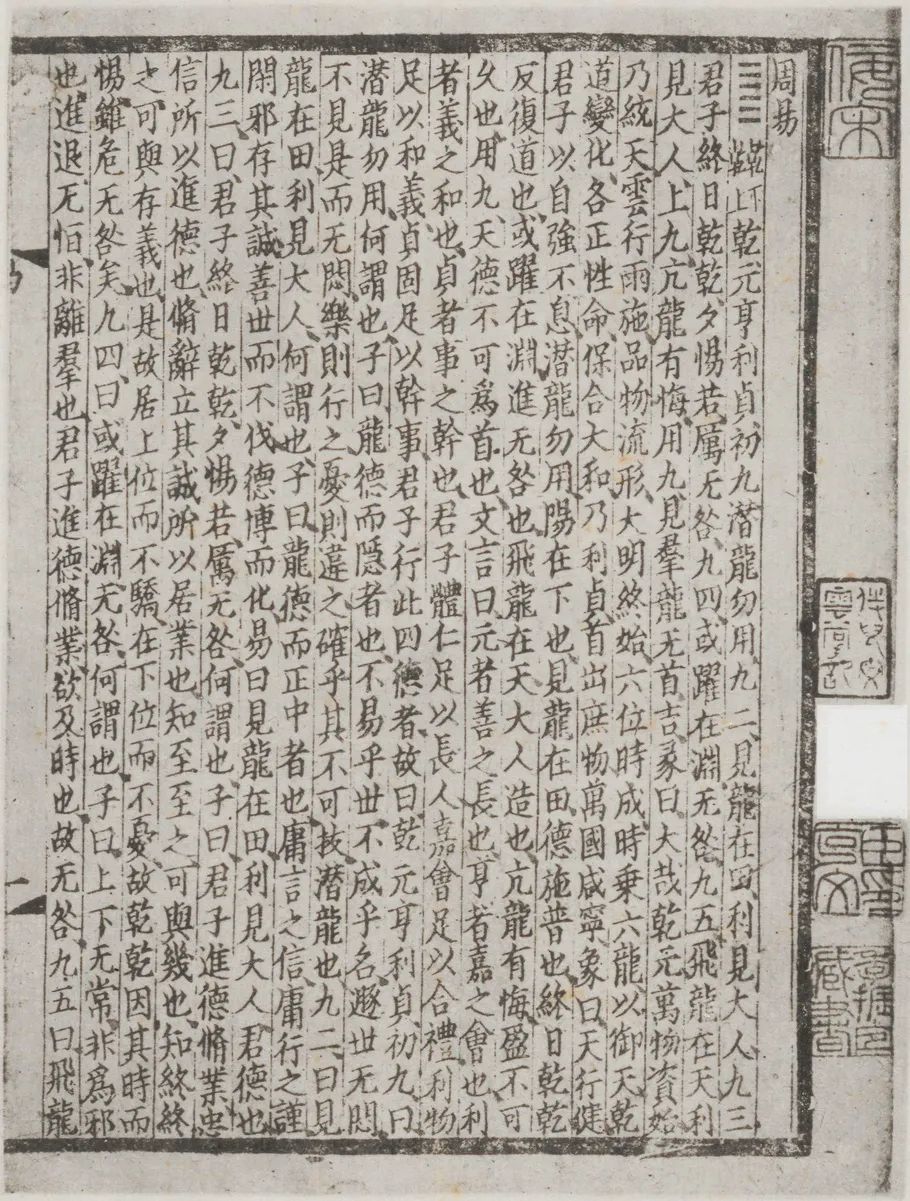 周易
䷀乾下乾上乾元亨利貞初九潛龍勿用九二見龍在田利見大人九三
君子終日乾乾夕惕若厲无咎九四或躍在淵无咎九五飛龍在天利
見大人上九亢龍有悔用九見羣龍无首吉彖曰大哉乾元萬物資始
乃統天雲行雨施品物流形大明終始六位時成時乘六龍以御天乾
道變化各正性命保合大和乃利貞首出庶物萬國咸寧象曰天行健
君子以自強不息潛龍勿用陽在下也見龍在田德施普也終日乾乾
反復道也或躍在淵進无咎也飛龍在天大人造也亢龍有悔盈不可
久也用九天德不可爲首也文言曰元者善之長也亨者嘉之會也利
者義之和也貞者事之幹也君子體仁足以長人嘉會足以合禮利物
足以和義貞固足以幹事君子行此四德者故曰乾元亨利貞初九曰
潛龍勿用何謂也子曰龍德而隱者也不易乎世不成乎名遯世无悶
不見是而无悶樂則行之憂則違之確乎其不可拔潛龍也九二曰見
龍在田利見大人何謂也子曰龍德而正中者也庸言之信庸行之謹
閑邪存其誠善世而不伐德博而化易曰見龍在田利見大人君德也
九三曰君子終日乾乾夕惕若厲无咎何謂也子曰君子進德脩業忠
信所以進德也脩辭立其誠所以居業也知至至之可與幾也知終終
之可與存義也是故居上位而不驕在下位而不憂故乾乾因其時而
惕雖危无咎矣九四曰或躍在淵无咎何謂也子曰上下无常非爲邪
也進退无恒非離羣也君子進德脩業欲及時也故无咎九五曰飛龍